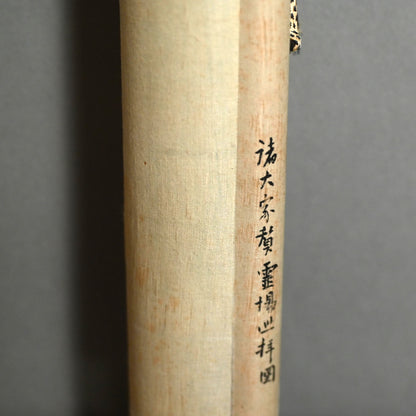 諸大家賛霊場巡拝図